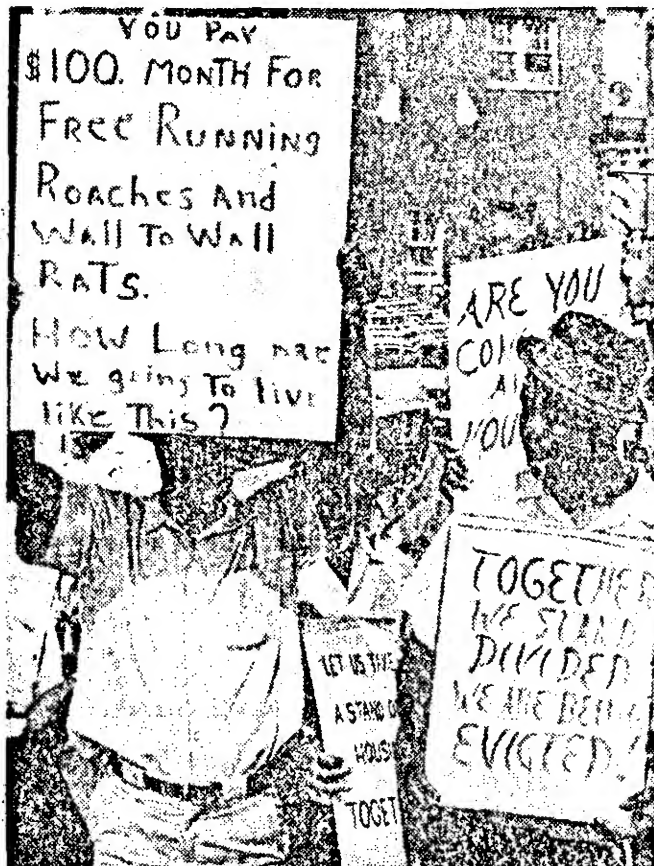 YOU PAY
$100. MONTH FOR
FREE RUNNING
ROACHES AND
WALL TO WALL
RATS.
HOW LONG ARE
WE going To live
like This?
ARE YOU
TOGETHER
WE STAND
DIVIDED
WE ARE BEING
EVICTED!
LET US
A STAND
TOGET